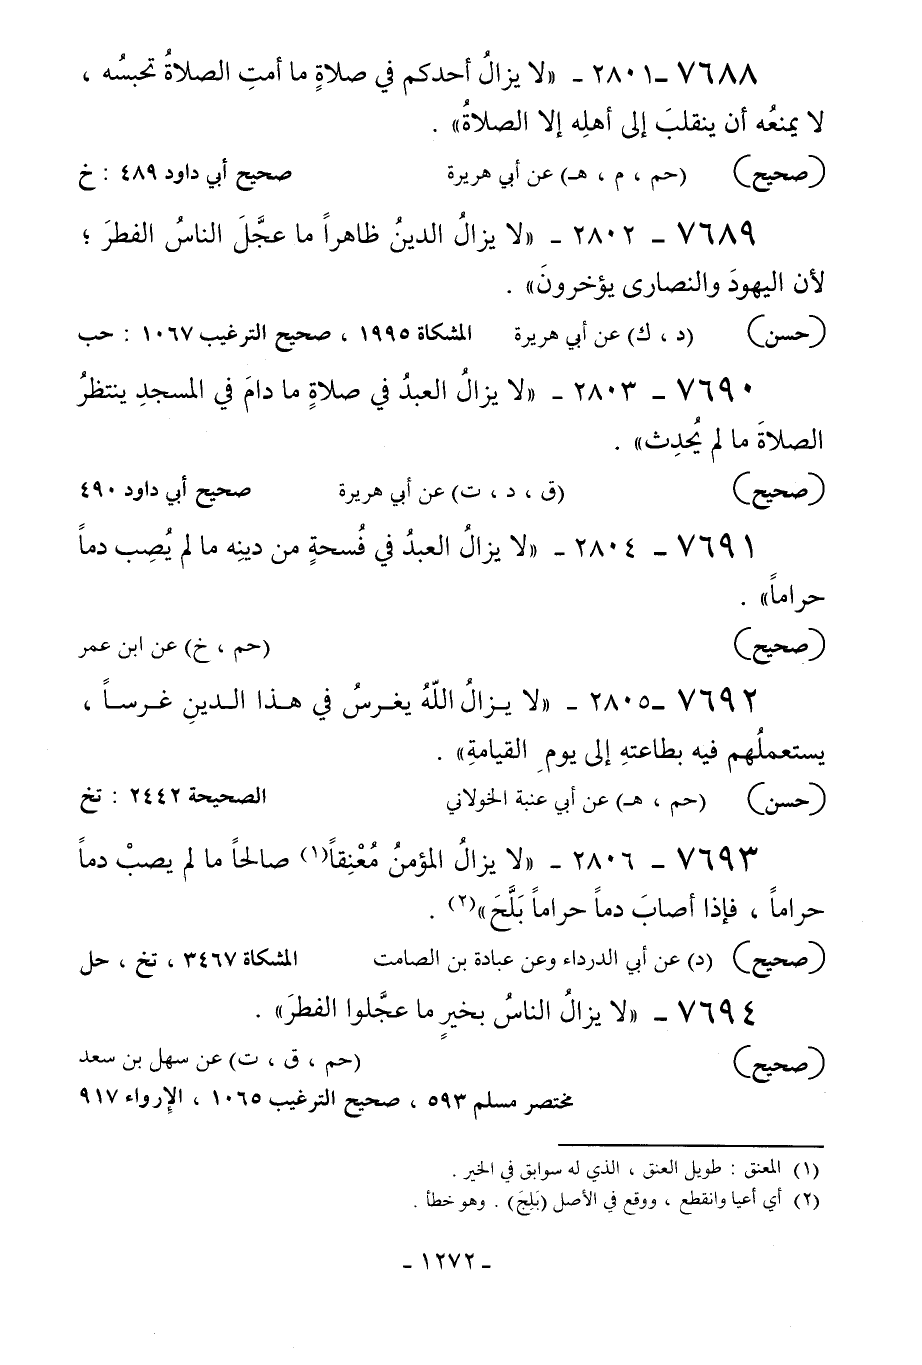 ٧٦٨٨ ـ ٢٨٠١ ـ «لا يزالُ أحدكم في صلاةٍ ما أمتِ الصلاةُ تحبسُه ،
لا يمنعُه أن ينقلبَ إلى أهلِه إلا الصلاةُ» .
(صحيح) (حم ، م ، هـ) عن أبي هريرة صحيح أبي داود ٤٨٩ : خ
٧٦٨٩ ـ ٢٨٠٢ ـ «لا يزالُ الدينُ ظاهراً ما عجَّلَ الناسُ الفطرَ ؛
لأن اليهودَ والنصارى يؤخرونَ» .
(حسن) (د ، ك) عن أبي هريرة المشكاة ١٩٩٥ ، صحيح الترغيب ١٠٦٧ : حب
٧٦٩٠ ـ ٢٨٠٣ ـ «لا يزالُ العبدُ في صلاةٍ ما دامَ في المسجدِ ينتظرُ
الصلاةَ ما لم يُحدِث» .
(صحيح) (ق ، د ، ت) عن أبي هريرة صحيح أبي داود ٤٩٠
٧٦٩١ ـ ٢٨٠٤ ـ «لا يزالُ العبدُ في فُسحةٍ من دينِه ما لم يُصِب دماً
حراماً» .
(صحيح) (حم ، خ) عن ابن عمر
٧٦٩٢ ـ ٢٨٠٥ ـ «لا يـزالُ اللّهُ يغـرسُ في هـذا الـدينِ غـرسـاً ،
يستعملُهم فيه بطاعتهِ إلى يومِ القيامةِ» .
(حسن) (حم ، هـ) عن أبي عنبة الخولاني الصحيحة ٢٤٤٢ : تخ
٧٦٩٣ ـ ٢٨٠٦ ـ «لا يزالُ المؤمنُ مُعْنِقاً(١) صالحاً ما لم يصبْ دماً
حراماً ، فإذا أصابَ دماً حراماً بَلَّحَ»(٢) .
(صحيح) (د) عن أبي الدرداء وعن عبادة بن الصامت المشكاة ٣٤٦٧ ، تخ ، حل
٧٦٩٤ ـ «لا يزالُ الناسُ بخيرٍ ما عجَّلوا الفطرَ» .
(صحيح) (حم ، ق ، ت) عن سهل بن سعد
مختصر مسلم ٥٩٣ ، صحيح الترغيب ١٠٦٥ ، الإرواء ٩١٧
(١) المعنق : طويل العنق ، الذي له سوابق في الخير .
(٢) أي أعيا وانقطع ، ووقع في الأصل (بَلِجَ) . وهو خطأ .
ـ ١٢٧٢ ـ